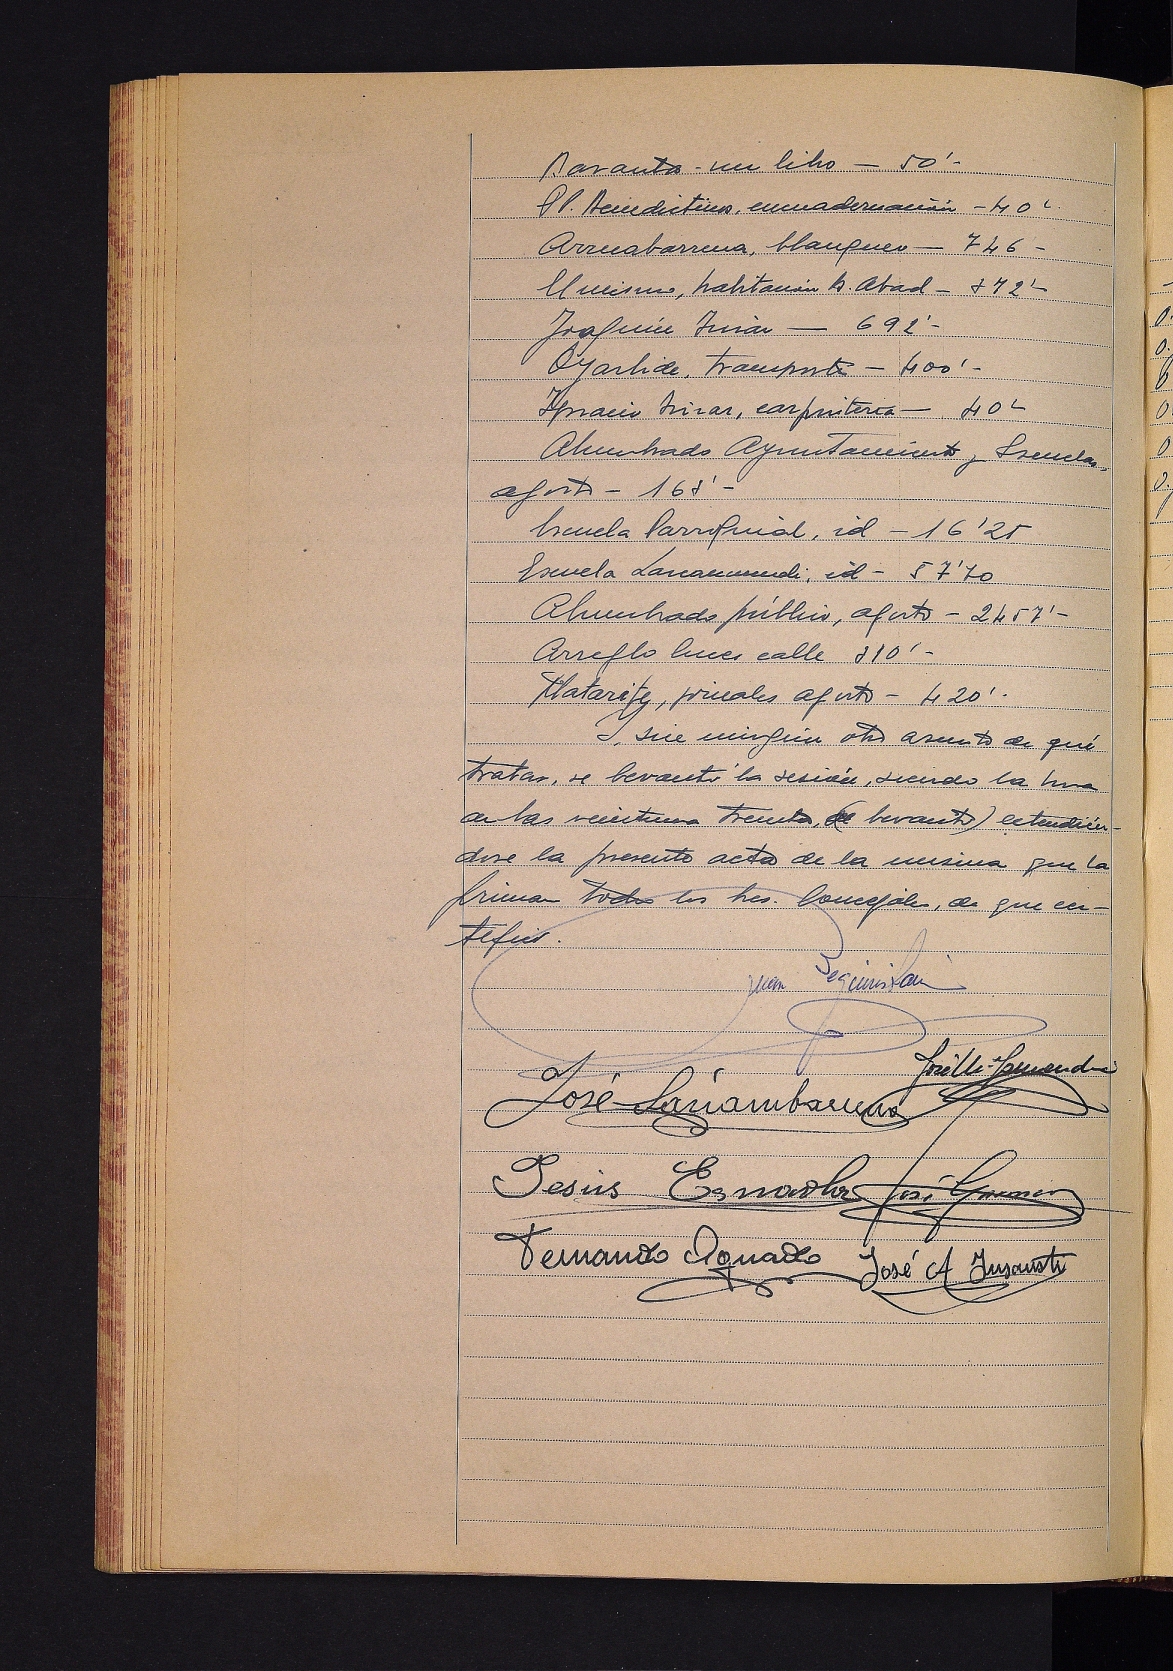 Navanto - un libro — 50'-
PP. Benedictinos, encuadernación - 40'
Arruabarrena, blanqueo — 746 -
El mismo, habitación D. Abad - 872'-
Joaquín — 692'-
Oyarbide, transporte — 400'-
Ignacio, carpintería — 40'
Alumbrado Ayuntamiento y Escuelas,
agosto - 168'-
Escuela Parroquial, id - 16'25
Escuela Larramendi, id - 57'70
Alumbrado público, agosto - 2457'-
Arreglo luces calle 810'-
Matarife, jornales agosto - 420'-
Y, sin ningún otro asunto de qué
tratar, se levantó la sesión, siendo la hora
de las veintiuna treinta, (se levantó) extendién-
dose la presente acta de la misma que la
firman todos los Sres. Concejales, de que cer-
tifico.
Juan Beguiristain
José
José
Jesús Esnaola José
Fernando Aguado José A Insausti